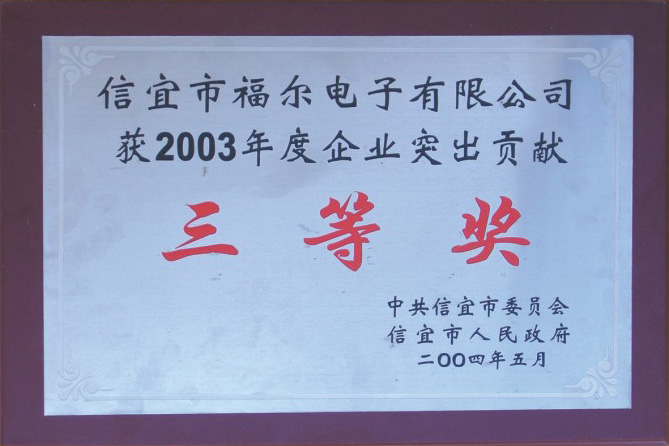 信宜市福尔电子有限公司
获2003年度企业突出贡献
三等奖
中共信宜市委员会
信宜市人民政府
二OO四年五月